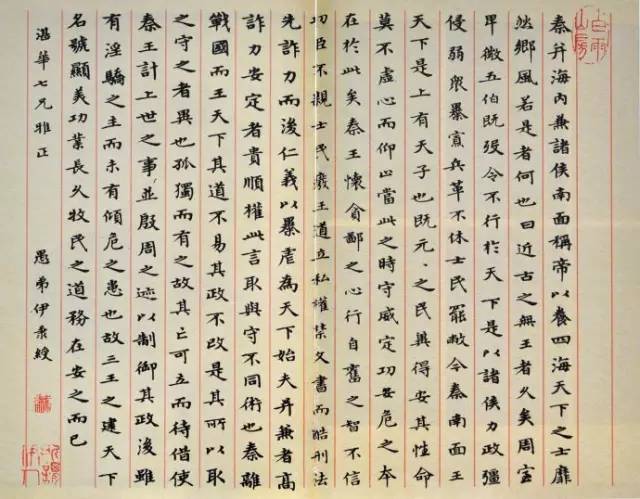 秦并海內兼諸侯南面稱帝以養四海天下之士靡
然鄉風若是者何也曰近古之無王者久矣周室
卑微五伯既殁令不行於天下是以諸侯力政彊
侵弱眾暴寡兵革不休士民罷敝今秦南面王
天下是上有天子也既元〻之民冀得安其性命
莫不虛心而仰上當此之時守威定功安危之本
在於此矣秦王懷貪鄙之心行自奮之智不信
功臣不親士民廢王道立私權禁文書而酷刑法
先詐力而後仁義以暴虐為天下始夫并兼者高
詐力安定者貴順權此言取與守不同術也秦離
戰國而王天下其道不易其政不改是其所以取
之守之者異也孤獨而有之故其亡可立而待借使
秦王計上世之事並殷周之迹以制御其政後雖
有淫驕之主而未有傾危之患也故三王之建天下
名號顯美功業長久牧民之道務在安之而已
湛華七兄雅正 愚弟伊秉綬